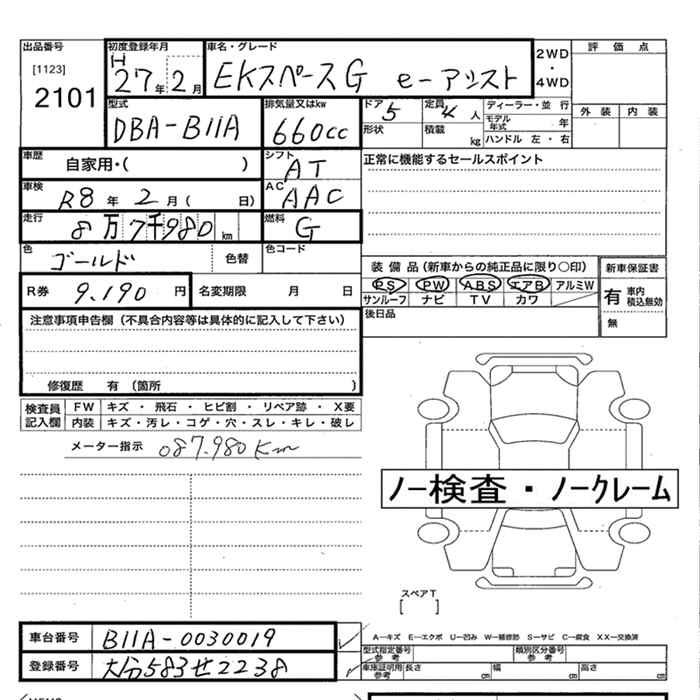 出品番号 初度登録年月 車名・グレード 2WD・4WD 評価点
[1123] 2101 H27年2月 EKスペースG e-アシスト
外装 内装
型式 排気量又はkw ドア 5 定員 4 人 ディーラー・並行
DBA-B11A 660cc 形状 積載 kg モデル年式 年
ハンドル 左・右
車歴 自家用・( ) シフト AT 正常に機能するセールスポイント
車検 R8年2月( 日) AC AAC
走行 8万7千980km 燃料 G
色 ゴールド 色替 色コード
装備品(新車からの純正品に限り○印) 新車保証書
R券 9,190円 名変期限 月 日 PS PW ABS エアB アルミW 有 車内積込無効
サンルーフ ナビ TV カワ
無
注意事項申告欄(不具合内容等は具体的に記入して下さい) 後日品
修復歴 有(箇所 )
検査員記入欄 FW キズ・飛石・ヒビ割・リペア跡・X要
内装 キズ・汚レ・コゲ・穴・スレ・キレ・破レ
メーター指示 087.980Km
ノー検査・ノークレーム
スペアT
[ ]
A―キズ E―エクボ U―凹み W―補修跡 S―サビ C―腐食 XX―交換済
車台番号 B11A-0030019 型式指定番号 参考 類別区分番号 参考
登録番号 大分583せ2238 車庫証明用 参考 長さ cm 幅 cm 高さ cm